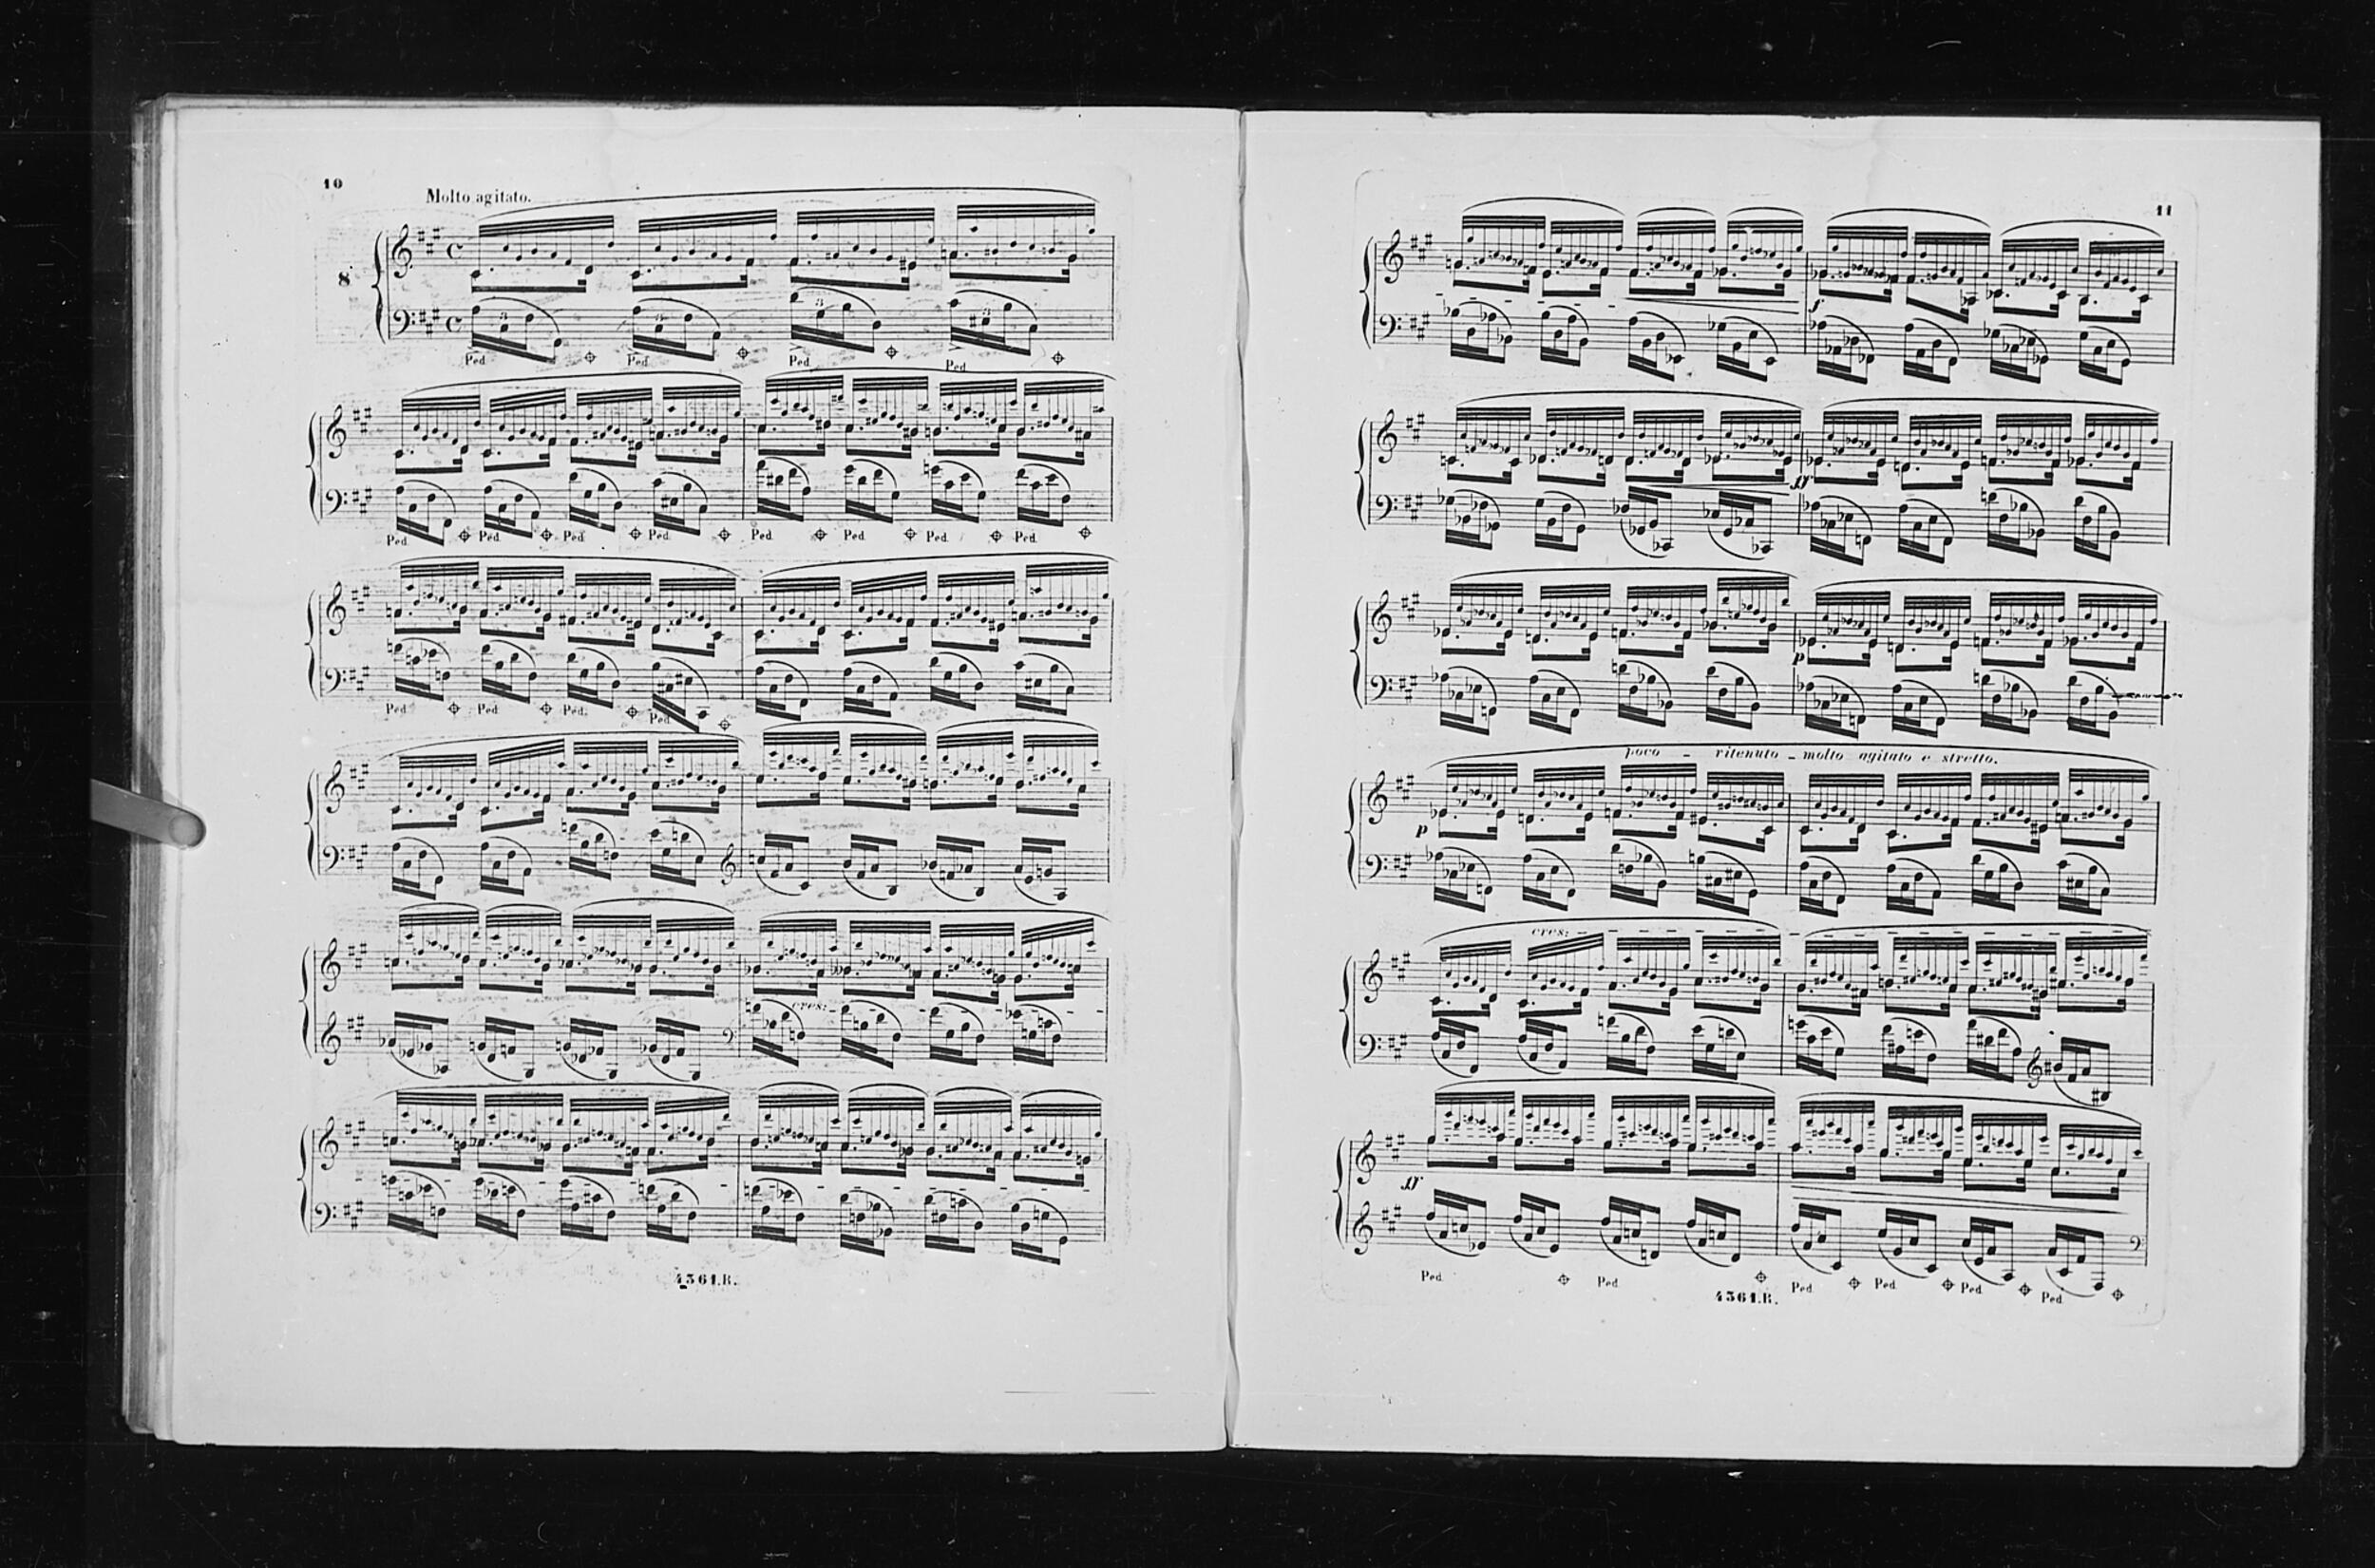 10
Molto agitato.
8
3 3 3 3
Ped Ped Ped Ped
Ped Ped Ped Ped Ped Ped Ped Ped
Ped Ped Ped. Ped
cres:
4361.R.
11
f
ff
p
poco - ritenuto - molto agitato e stretto.
p
cres:
ff
Ped Ped Ped Ped Ped Ped
4361.R.